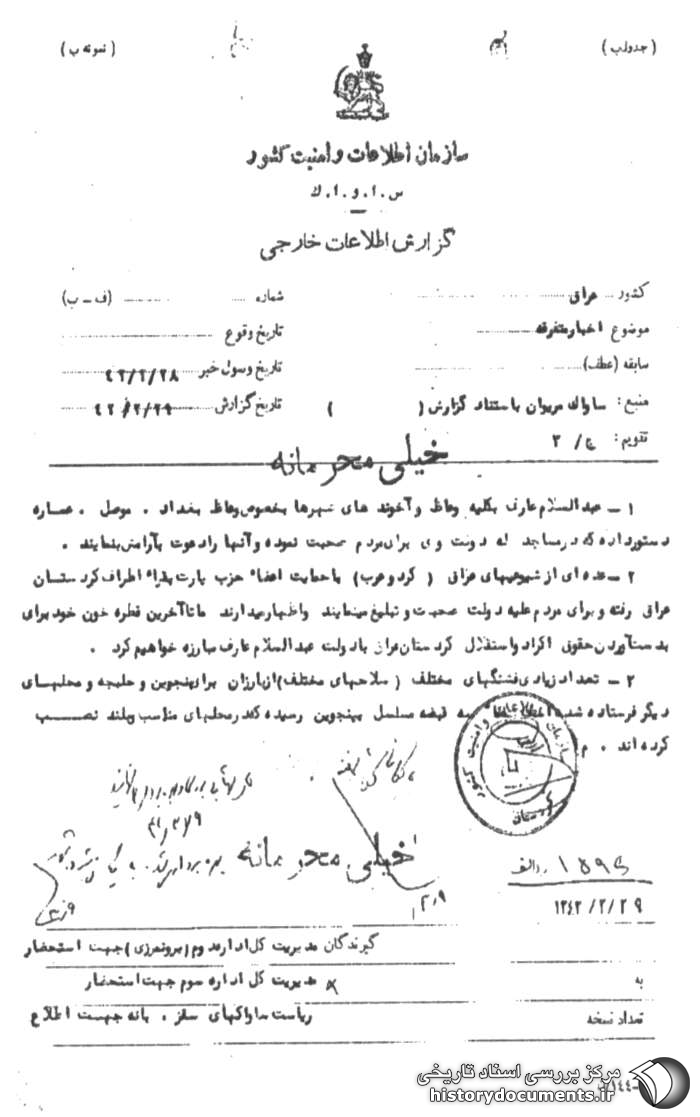 (جدول ب) (نمونه ب)
سازمان اطلاعات و امنیت کشور
س . ا . و . ا . ک
گزارش اطلاعات خارجی
کشور عراق شماره (ف - ب)
موضوع اخبار متفرقه تاریخ وقوع
سابقه (عطف) تاریخ وصول خبر ۴۲/۲/۲۸
منبع: ساواک مریوان باستناد گزارش ( ) تاریخ گزارش ۴۲/۲/۲۹
تقویم: ج/ ۲
خیلی محرمانه
۱ - عبدالسلام عارف بکلیه وعاظ و آخوند های شهرها بخصوص وعاظ بغداد . موصل . عماره
دستور داده که در مساجد له دولت وی برای مردم صحبت نموده و آنها را دعوت بآرامش بنمایند .
۲ - عده ای از شیوعیهای عراق ( کرد و عرب ) با حمایت اعضاء حزب پارت بقراء اطراف کردستان
عراق رفته و برای مردم علیه دولت صحبت و تبلیغ مینمایند واظهار میدارند ما تا آخرین قطره خون خود برای
بدست آوردن حقوق اکراد و استقلال کردستان عراق با دولت عبدالسلام عارف مبارزه خواهیم کرد .
۲ - تعداد زیادی فشنگهای مختلف ( سلاحهای مختلف ) از بارزان برای پنجوین و حلبچه و محلهای
دیگر فرستاده شده قبضه مسلسل بپنجوین رسیده که در محلهای مناسب و بلند نصب
کرده اند . م
سازمان اطلاعات و امنیت کشور
خیلی محرمانه
۲/۹
۱۳۴۲/۲/۲۹
گیرندگان مدیریت کل اداره دوم (برونمرزی) جهت استحضار
به مدیریت کل اداره سوم جهت استحضار
تعداد نسخه ریاست ساواکهای سقز . بانه جهت اطلاع
مرکز بررسی اسناد تاریخی
historydocuments.ir